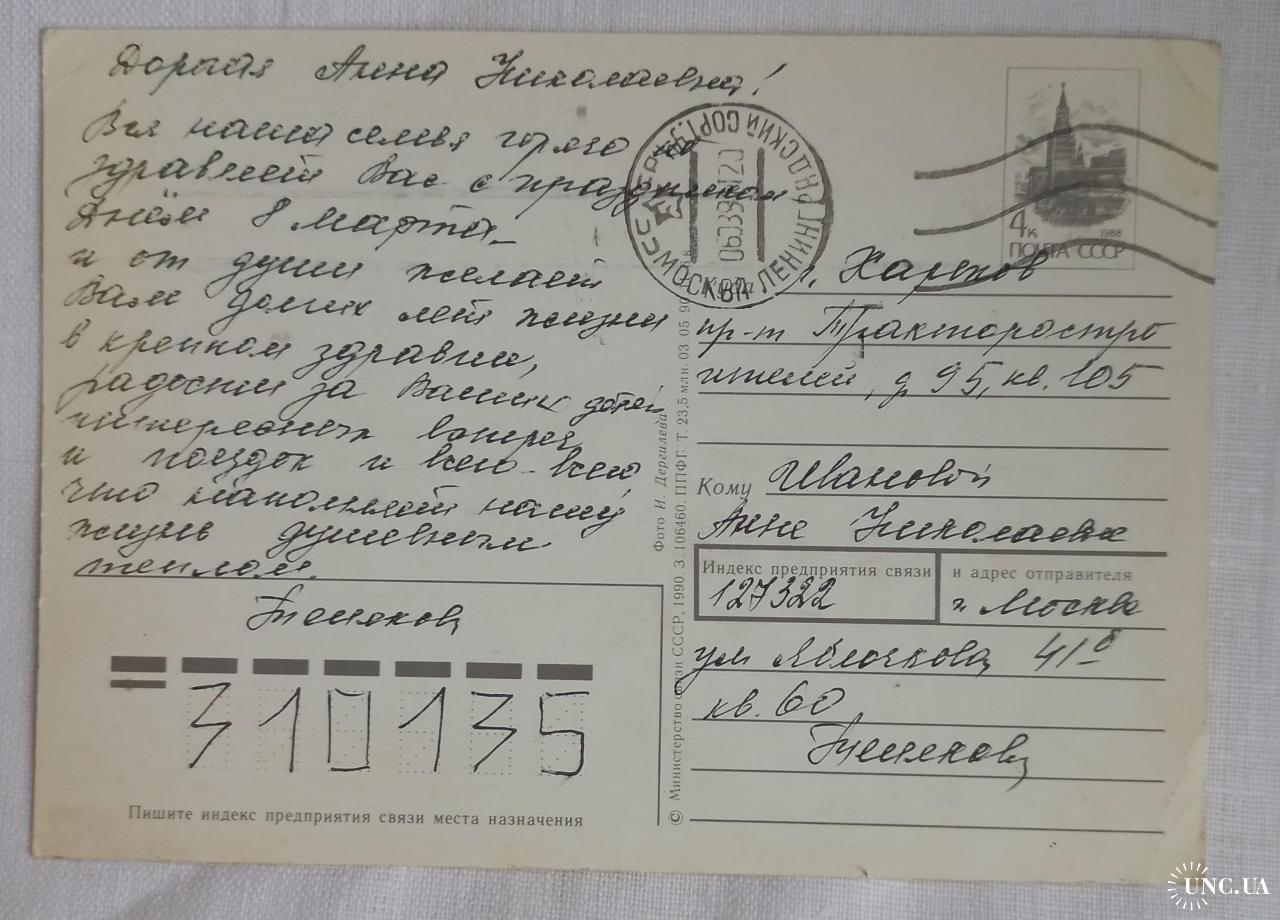 Дорогая Анна Николаевна!
Вся наша семья горячо по
здравляет Вас с праздником
Днём 8 марта
и от души желает
Вам долгих лет жизни
в крепком здравии,
радости за Ваших детей
интересных
и поездок и всего-всего
что наполняет нашу
жизнь душевным
теплом.
310135
Пишите индекс предприятия связи места назначения
СССР МОСКВА ЛЕНИНГРАДСКИЙ СОРТ.
4к 1988
ПОЧТА СССР
Куда г. Харьков
пр-т Тракторострo
ителей, д 95, кв. 105
Кому Ивановой
Анне Николаевне
Индекс предприятия связи и адрес отправителя
127322 г. Москва
ул Яблочкова 41б
кв. 60
© Министерство связи СССР, 1990. З. 106460. ППФГ. Т. 23,5 млн. 03. 05. 90
Фото И. Дергилева
UNC.UA